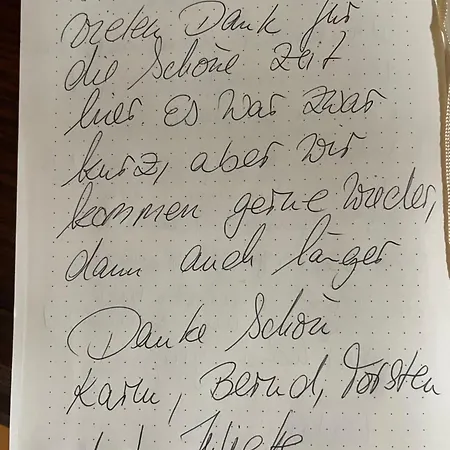 vielen Dank für
die schöne Zeit
hier. Es war zwar
kurz, aber wir
kommen gerne wieder,
dann auch länger
Danke Schön
Karin, Bernd, Torsten